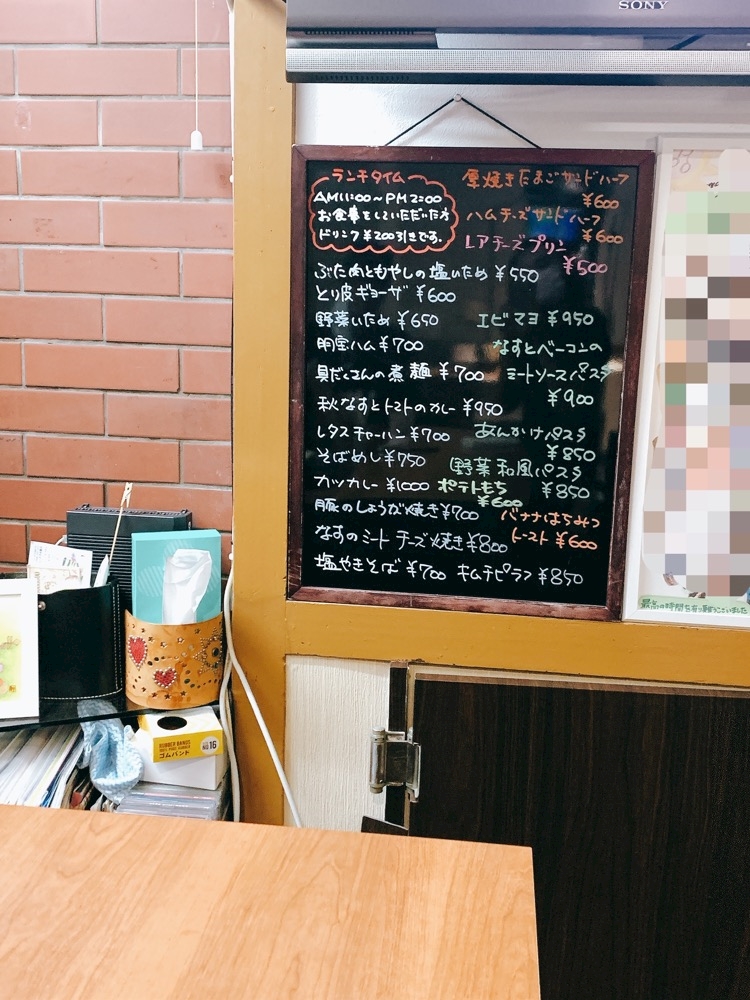 SONY
ランチタイム
AM11:00〜PM2:00
お食事をしていただいた方
ドリンク¥200引きです.
厚焼きたまごサンドハーフ
¥600
ハムチーズサンドハーフ
¥600
レアチーズプリン
¥500
ぶた肉ともやしの塩いため ¥550
とり皮ギョーザ ¥600
野菜いため ¥650
明宝ハム ¥700
具だくさんの煮麺 ¥700
秋なすとトマトのカレー ¥950
レタスチャーハン ¥700
そばめし ¥750
カツカレー ¥1000
豚のしょうが焼き ¥700
なすのミートチーズ焼き ¥800
塩やきそば ¥700
エビマヨ ¥950
なすとベーコンの
ミートソースパスタ
¥900
あんかけパスタ
¥850
野菜和風パスタ
¥850
ポテトもち
¥600
バナナはちみつ
トースト ¥600
キムチピラフ ¥850
RUBBER BANDS
ゴムバンド
NO 16